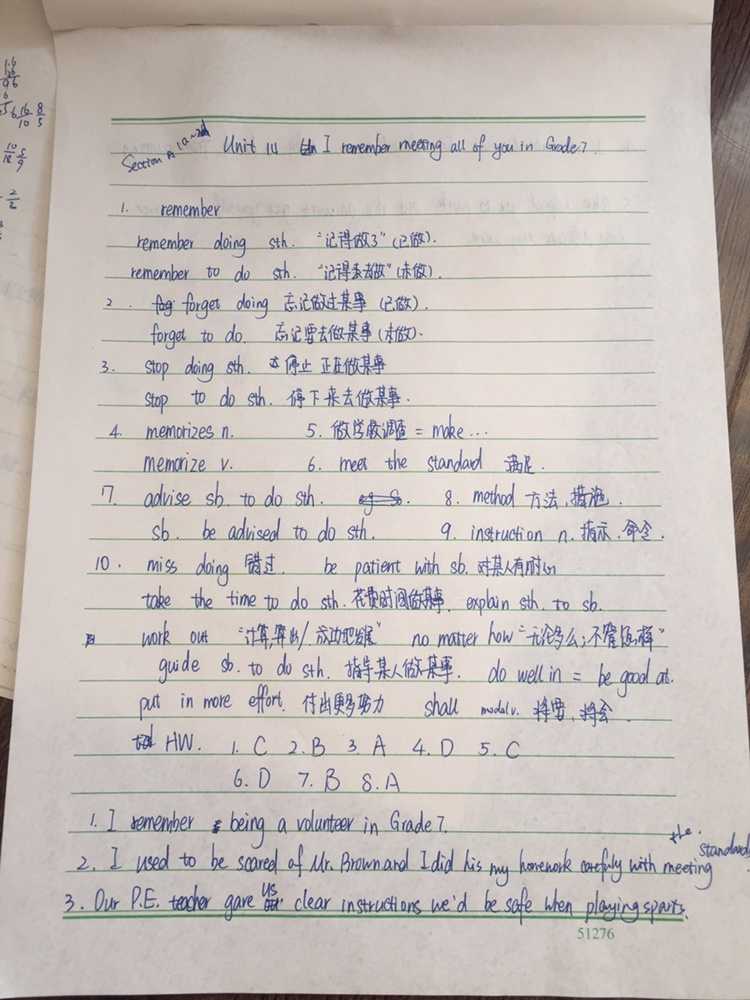 1.6
16 8
10 5
10 5
18 9
2
2
Section A 1a~2d Unit 14 I remember meeting all of you in Grade 7.
1. remember
remember doing sth. "记得做了" (已做).
remember to do sth. "记得要去做" (未做).
2. forget doing 忘记做过某事 (已做).
forget to do. 忘记要去做某事 (未做).
3. stop doing sth. 停止 正在做某事
stop to do sth. 停下来去做某事.
4. memorizes n. 5. 做学校调查 = make ...
memorize v. 6. meet the standard 满足.
7. advise sb. to do sth. 8. method 方法, 措施.
sb. be advised to do sth. 9. instruction n. 指示. 命令.
10. miss doing 错过. be patient with sb. 对某人有耐心
take the time to do sth. 花费时间做某事. explain sth. to sb.
work out "计算, 算出/. 成功地发展" no matter how "无论多么; 不管怎样"
guide sb. to do sth. 指导某人做某事. do well in = be good at.
put in more effort. 付出更多努力 shall modal v. 将要, 将会.
HW. 1. C 2. B 3. A 4. D 5. C
6. D 7. B 8. A
1. I remember being a volunteer in Grade 7.
2. I used to be scared of Mr. Brown and I did his my homework carefully with meeting the standard.
3. Our P.E. teacher gave us clear instructions we'd be safe when playing sparts.
51276